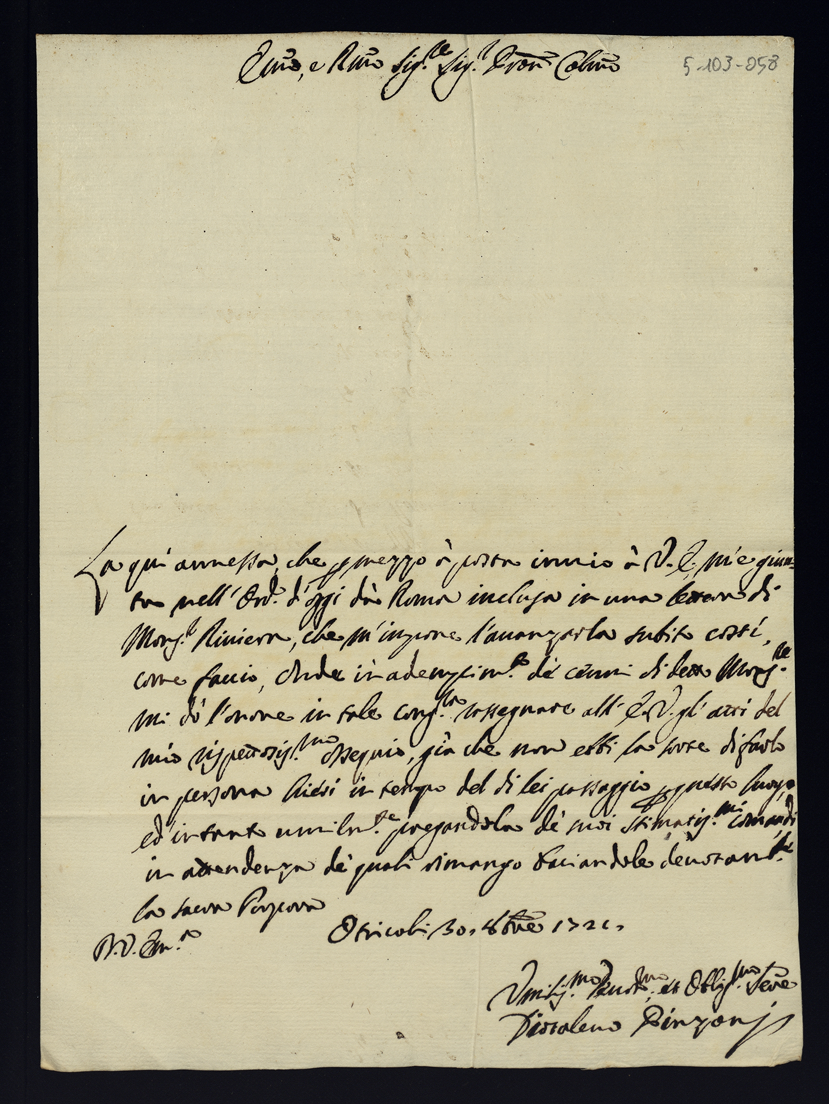 Emo, e Rmo Sig.re Sig.r Pron Colmo
5-103-058
La qui annessa, che p mezzo à posta invio à V. E. m'è giun=
ta nell'Ord. d'oggi dà Roma inclusa in una lettera di
Mons.r Riviera, che m'impone l'avanzarla subito costì,
come faccio, Onde in adempim.to de cenni di detto Mons.re
mi dò l'onore in tale cong.ra rassegnare all'E. V. gl'atti del
mio rispettosis.mo ossequio, già che non ebbi la sorte di farlo
in persona hieri in tempo del di lei passaggio p questo luogo,
ed intanto umilm.te pregandola de suoi stimatis.mi comandi
in attendenza de quali rimango baciandole devotam.te
la sacra Porpora
D. V. Em.za
Otricoli 30. 8bre 1721.
Umilis.mo Devot.mo, et Oblig.mo Serre
Pinzonj